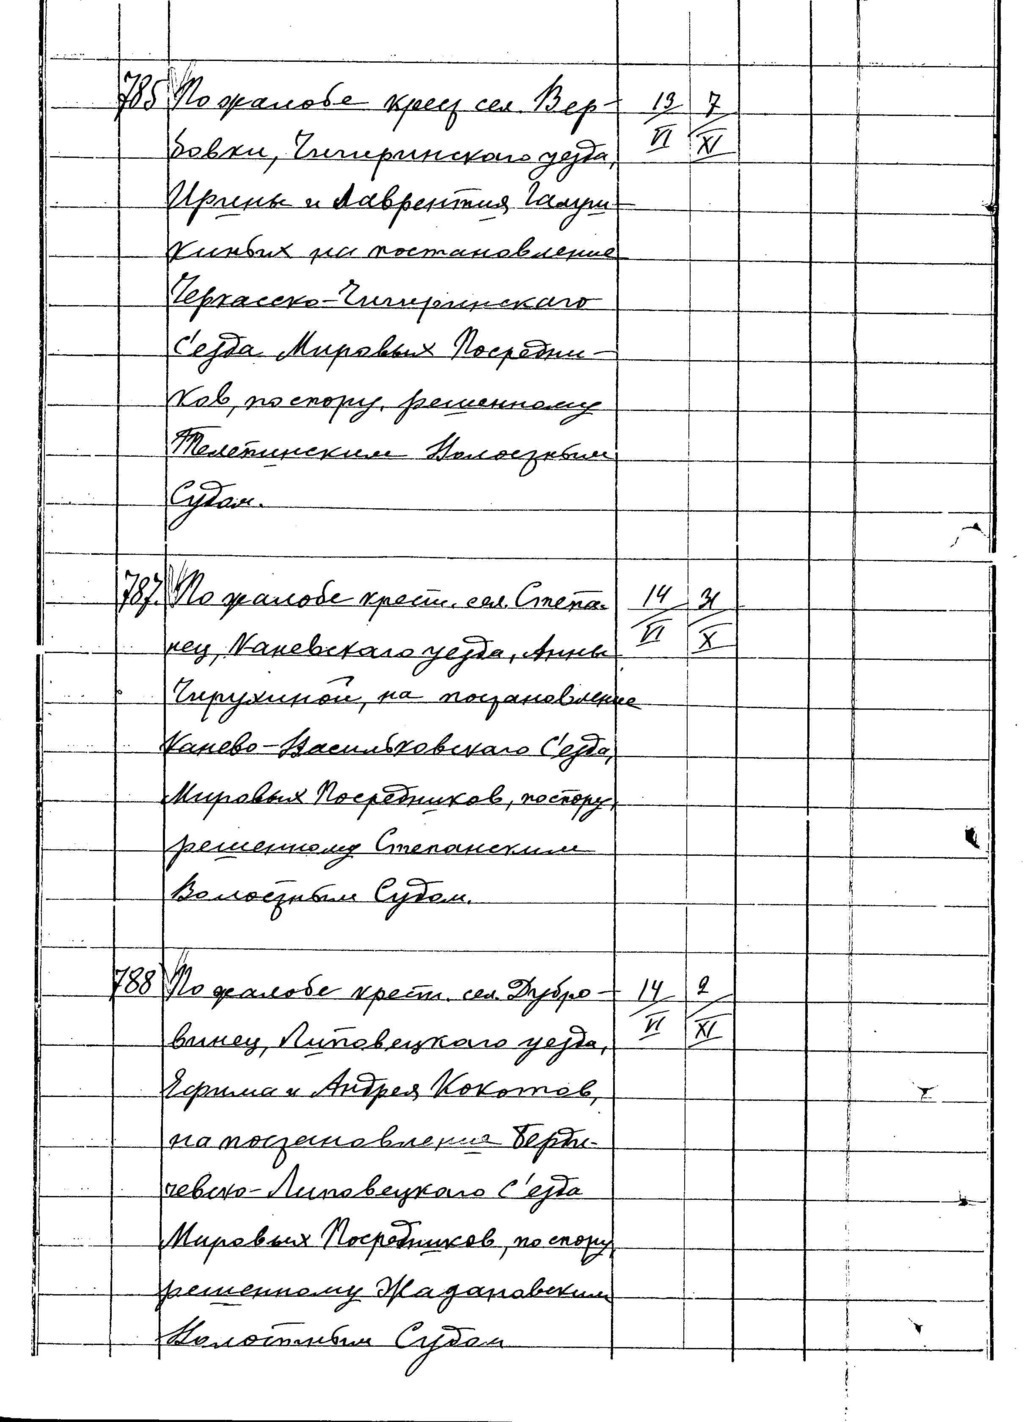 785 По жалобе крест. сел. Вер- 13/VI 7/XI
бовки, Чигиринскаго уезда,
Ирины и Лаврентия Галуш-
киных на постановление
Черкасско-Чигиринскаго
С'езда Мировых Посредни-
ков, по спору, решенному
Телепинским Волостным
Судом.
787. По жалобе крест. сел. Степа- 14/VI 31/X
нец, Каневскаго уезда, Анны
Чирухиной, на постановление
Канево-Васильковскаго С'езда,
Мировых Посредников, по спору,
решенному Степанским
Волостным Судом.
788 По жалобе крест. сел. Дубро- 14/VI 2/XI
винец, Липовецкаго уезда,
Ефима и Андрея Кокотов,
на постановления Берди-
чевско-Липовецкаго С'езда
Мировых Посредников, по спору,
решенному Жадановским
Волостным Судом